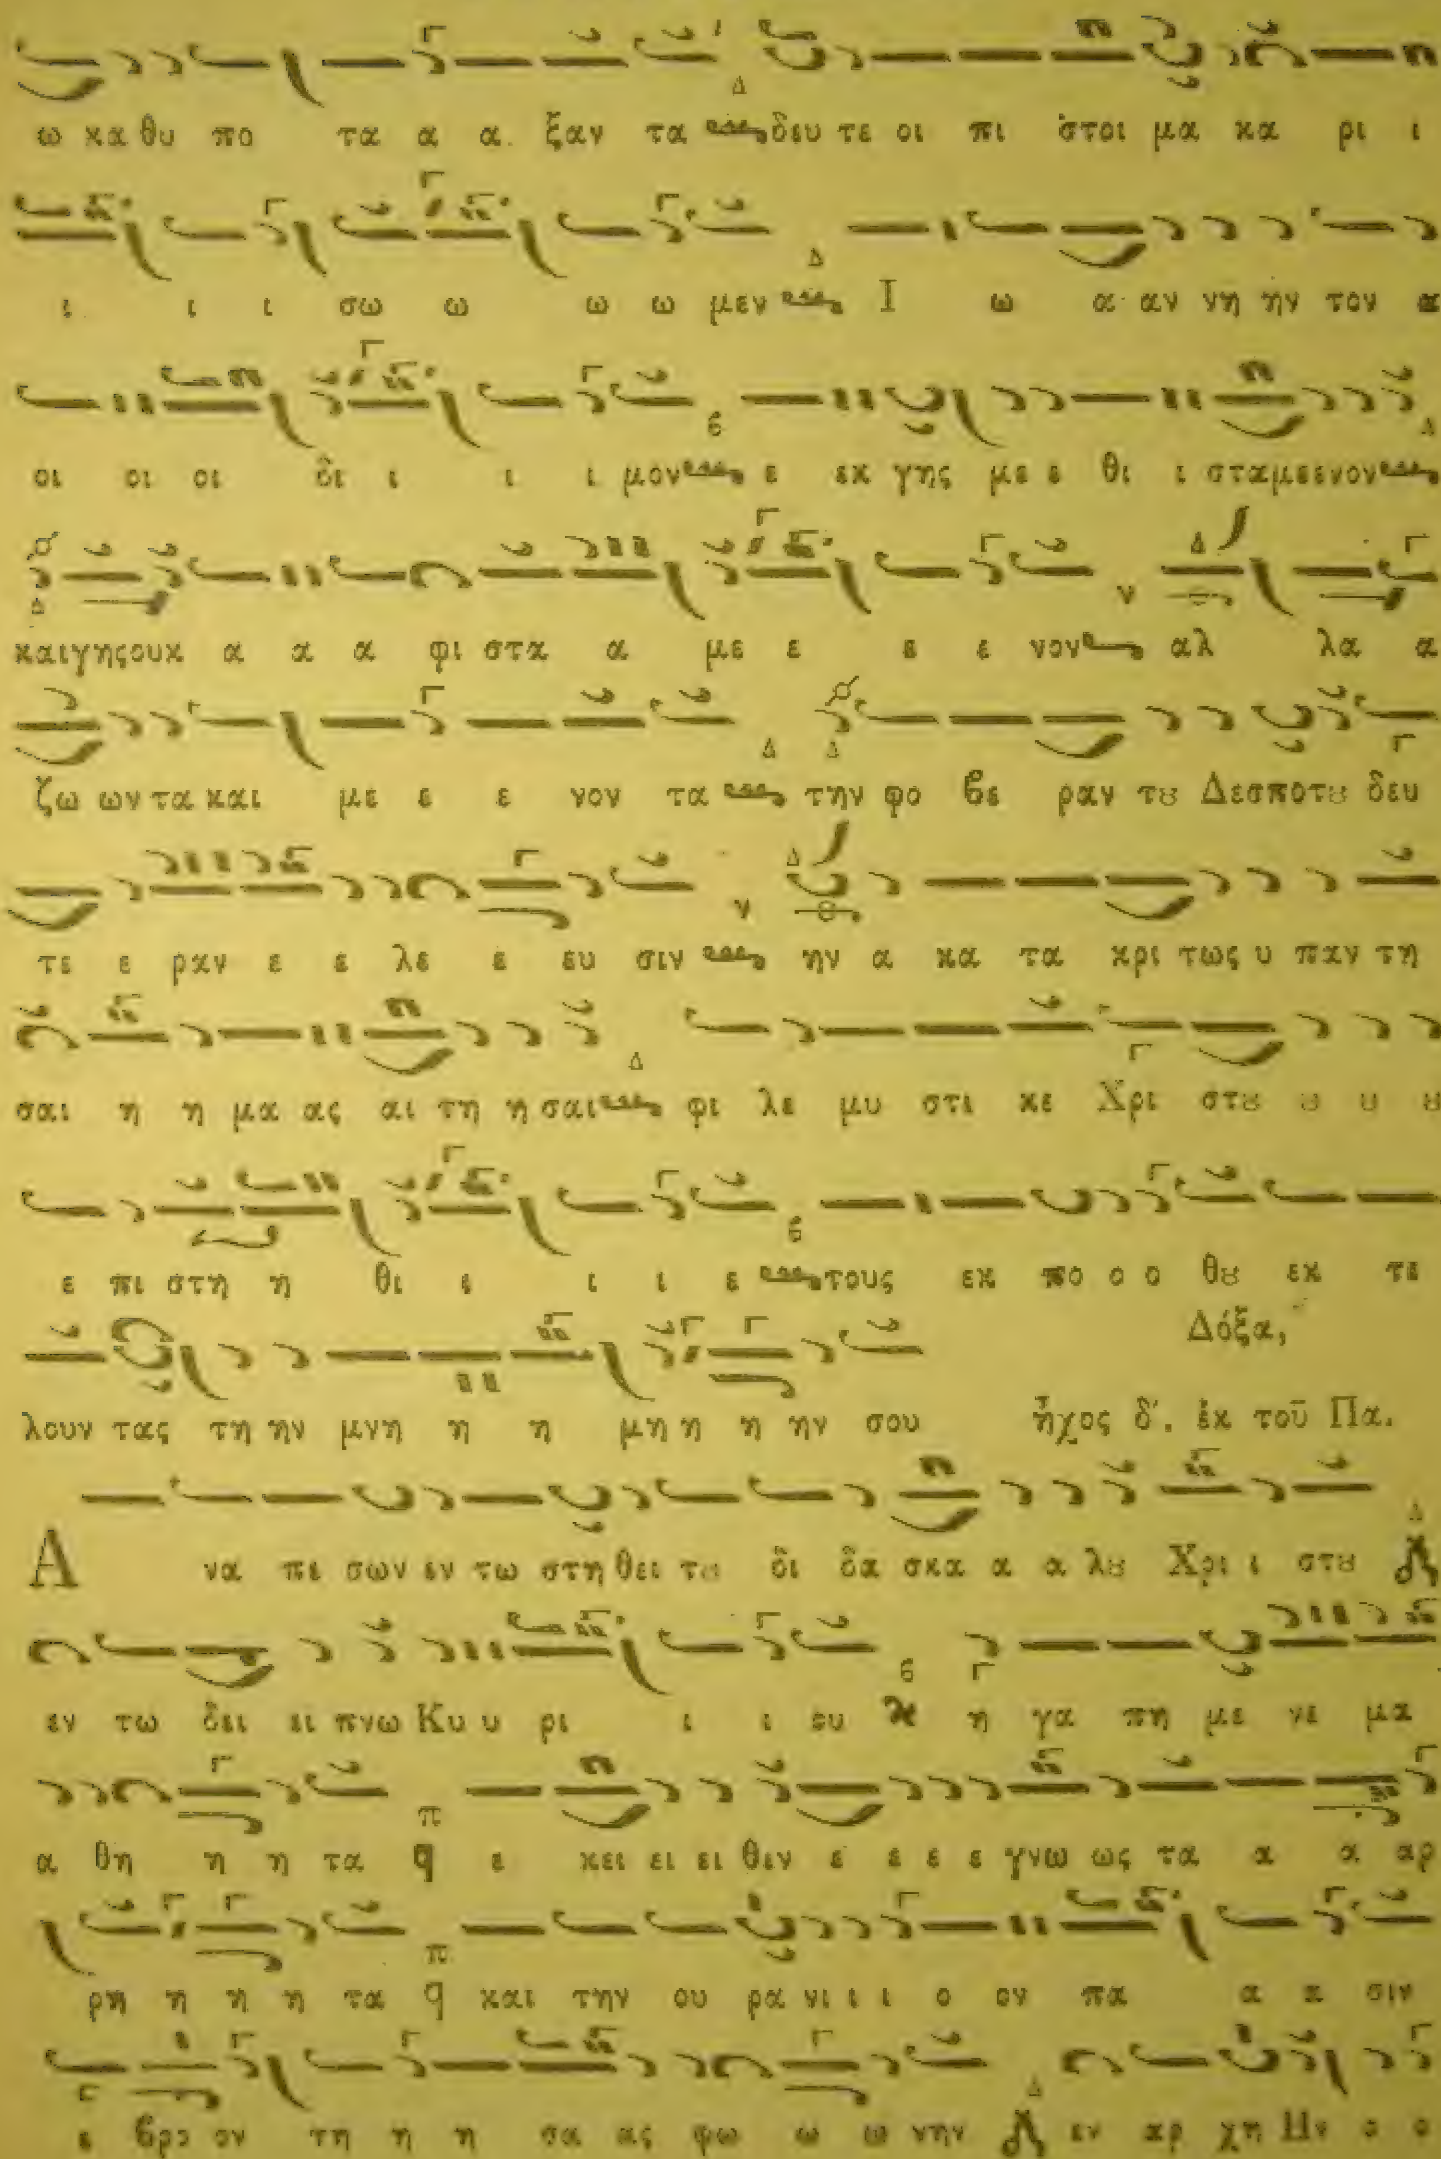 ω κα θυ πο τα α α ξαν τα δευ τε οι πι στοι μα κα ρι ι
ι ι ι σω ω ω ω μεν Ι ω α αν νη ην τον α
οι οι οι δι ι ι ι μον ε εκ γης με ε θι ι σταμεενον
καιγηςουκ α α α φι στα α με ε ε ε νον αλ λα α
ζω ων τα και με ε ε νον τα την φο βε ραν τȣ Δεσποτȣ δευ
τε ε ραν ε ε λε ε ευ σιν ην α κα τα κρι τως υ παν τη
σαι η η μα ας αι τη η σαι φι λε μυ στι κε Χρι στȣ ȣ ȣ ȣ
ε πι στη η θι ι ι ι ε τους εκ πο ο ο θȣ εκ τε
Δόξα,
λουν τας τη ην μνη η η μη η η ην σου ἦχος δ'. ἐκ τοῦ Πα.
Α να πε σων εν τω στη θει τȣ δι δα σκα α α λȣ Χρι ι στȣ
εν τω δει ει πνω Κυ υ ρι ι ι ου η γα πη με νε μα
α θη η η τα π ε κει ει ει θεν ε ε ε ε γνω ως τα α α αρ
ρη η η η τα π και την ου ρα νι ι ι ο ον πα α α σιν
ε βρο ον τη η η σα ας φω ω ω νην εν αρ χη Ην ο ο